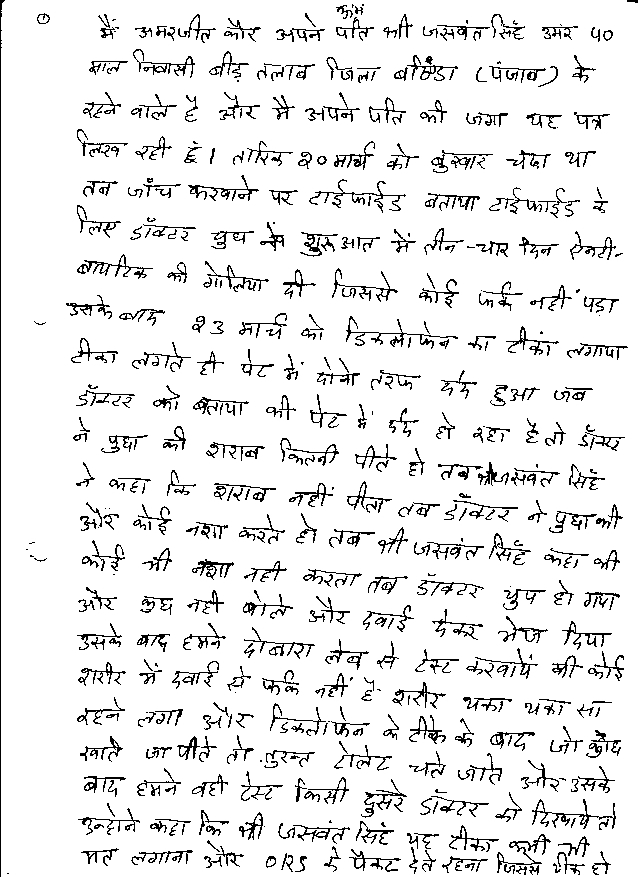 ①
मैं अमरजीत कौर अपने पति श्री जसवंत सिंह उमर ५०
साल निवासी बीड़ तलाब जिला बठिंडा (पंजाब) के
रहने वाले है और मै अपने पति की जगा यह पत्र
लिख रही हूं। तारिक २० मार्च को बुखार चढा था
तब जाँच करवाने पर टाईफाईड बताया टाईफाईड के
लिए डॉक्टर शुरूआत में तीन-चार दिन ऐनटी-
बायटिक की गोलिया दी जिससे कोई फर्क नहीं पडा
उसके बाद २३ मार्च को डिकलोफेन का टीका लगाया
टीका लगते ही पेट में दोनो तरफ दर्द हुआ जब
डॉक्टर को बताया की पेट में दर्द हो रहा है तो डॉक्टर
ने पुछा की शराब कितनी पीते हो तब श्री जसवंत सिंह
ने कहा कि शराब नहीं पीता तब डॉक्टर ने पुछा की
और कोई नशा करते हो तब श्री जसवंत सिंह कहा की
कोई भी नशा नही करता तब डॉक्टर चुप हो गया
और कुछ नही बोले और दवाई देकर भेज दिया
उसके बाद हमने दोबारा लेब से टेस्ट करवाये की कोई
शरीर में दवाई से फर्क नहीं है शरीर थका थका सा
रहने लगा और डिकलोफेन के टीके के बाद जो कुछ
खाते जा पीते तो तुरन्त टोलेट चले जाते और उसके
बाद हमने वही टेस्ट किसी दुसरे डॉक्टर को दिखाये तो
उन्होने कहा कि श्री जसवंत सिंह यह टीका कभी भी
मत लगाना और ORS के पैकट देते रहना जिससे ठीक हो